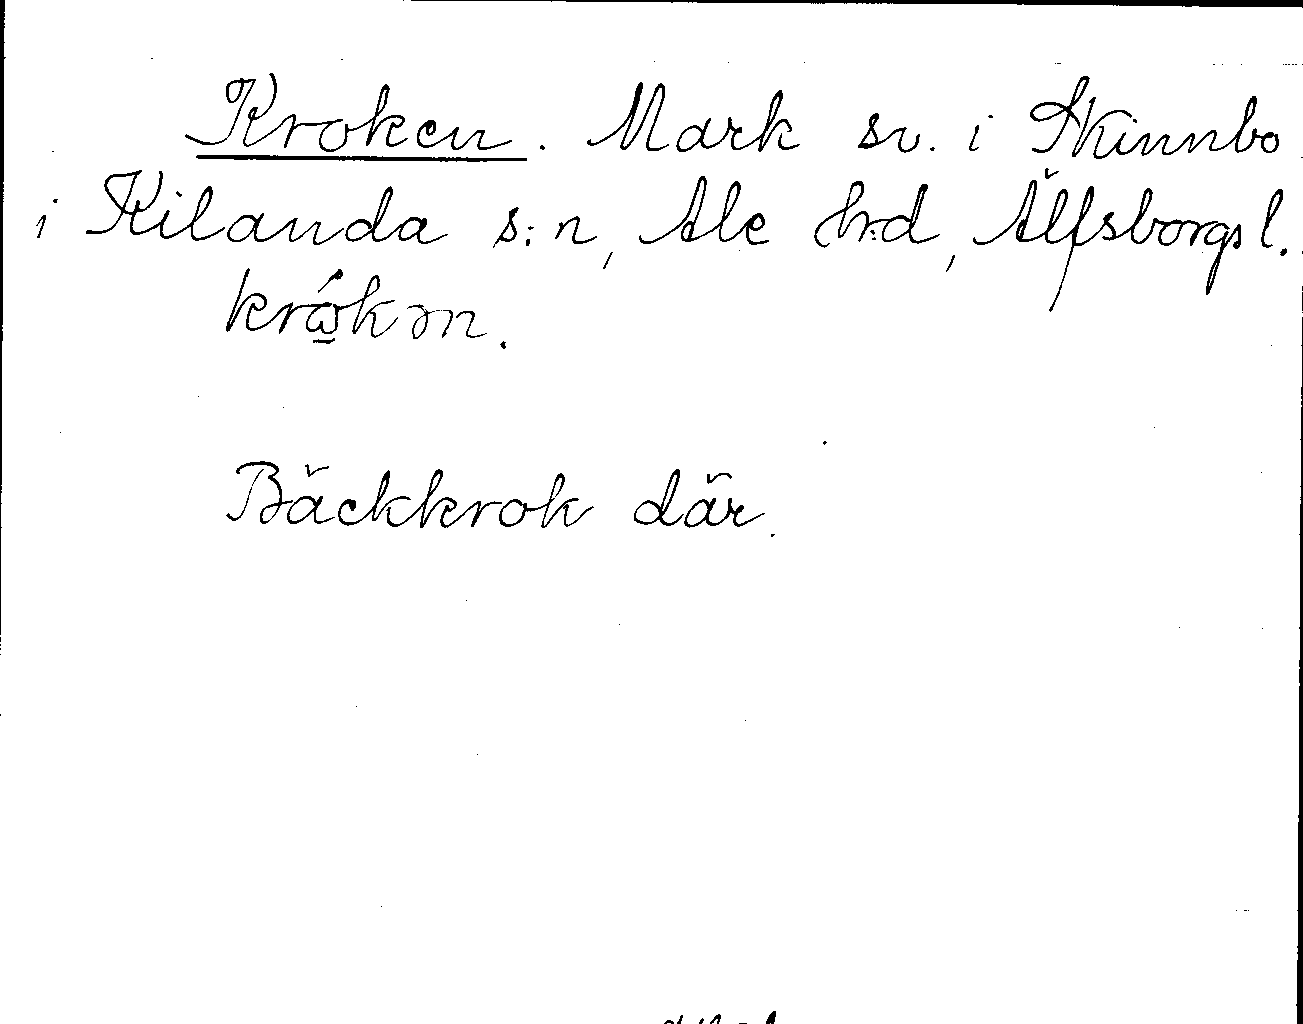 Kroken. Mark sv. i Skinnbo
i Kilanda s:n, Ale h:d, Älfsborgs l.
Bäckkrok där.